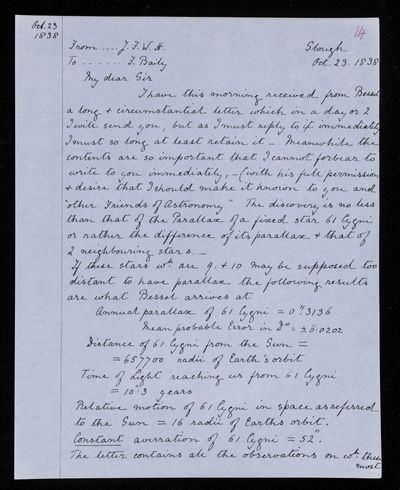 Oct. 23
1838
14
From .... J. F. W. H.
To ...... F. Baily
Slough
Oct. 23. 1838
My dear Sir
I have this morning received from Bessel
a long & circumstantial letter which in a day or 2
I will send you, but as I must reply to it immediately
I must so long at least retain it - Meanwhile the
contents are so important that I cannot forbear to
write to you immediately, - (with his full permission
& desire that I should make it known to you and
"other Friends of Astronomy" The discovery is no less
than that of the Parallax of a fixed star 61 Cygni
or rather the difference of its parallax & that of
2 neighbouring stars. -
If these stars wh. are 9. & 10 may be supposed too
distant to have parallax the following results
are what Bessel arrives at
Annual parallax of 61 Cygni = 0".3136
Mean probable Error in Do = ± 0.0202
Distance of 61 Cygni from the Sun =
= 657700 radii of Earth's orbit
Time of Light reaching us from 61 Cygni
= 10.3 years
Relative motion of 61 Cygni in space as referred
to the Sun = 16 radii of Earths orbit.
Constant aberration of 61 Cygni = 52".
The letter contains all the observations on wh. these
most